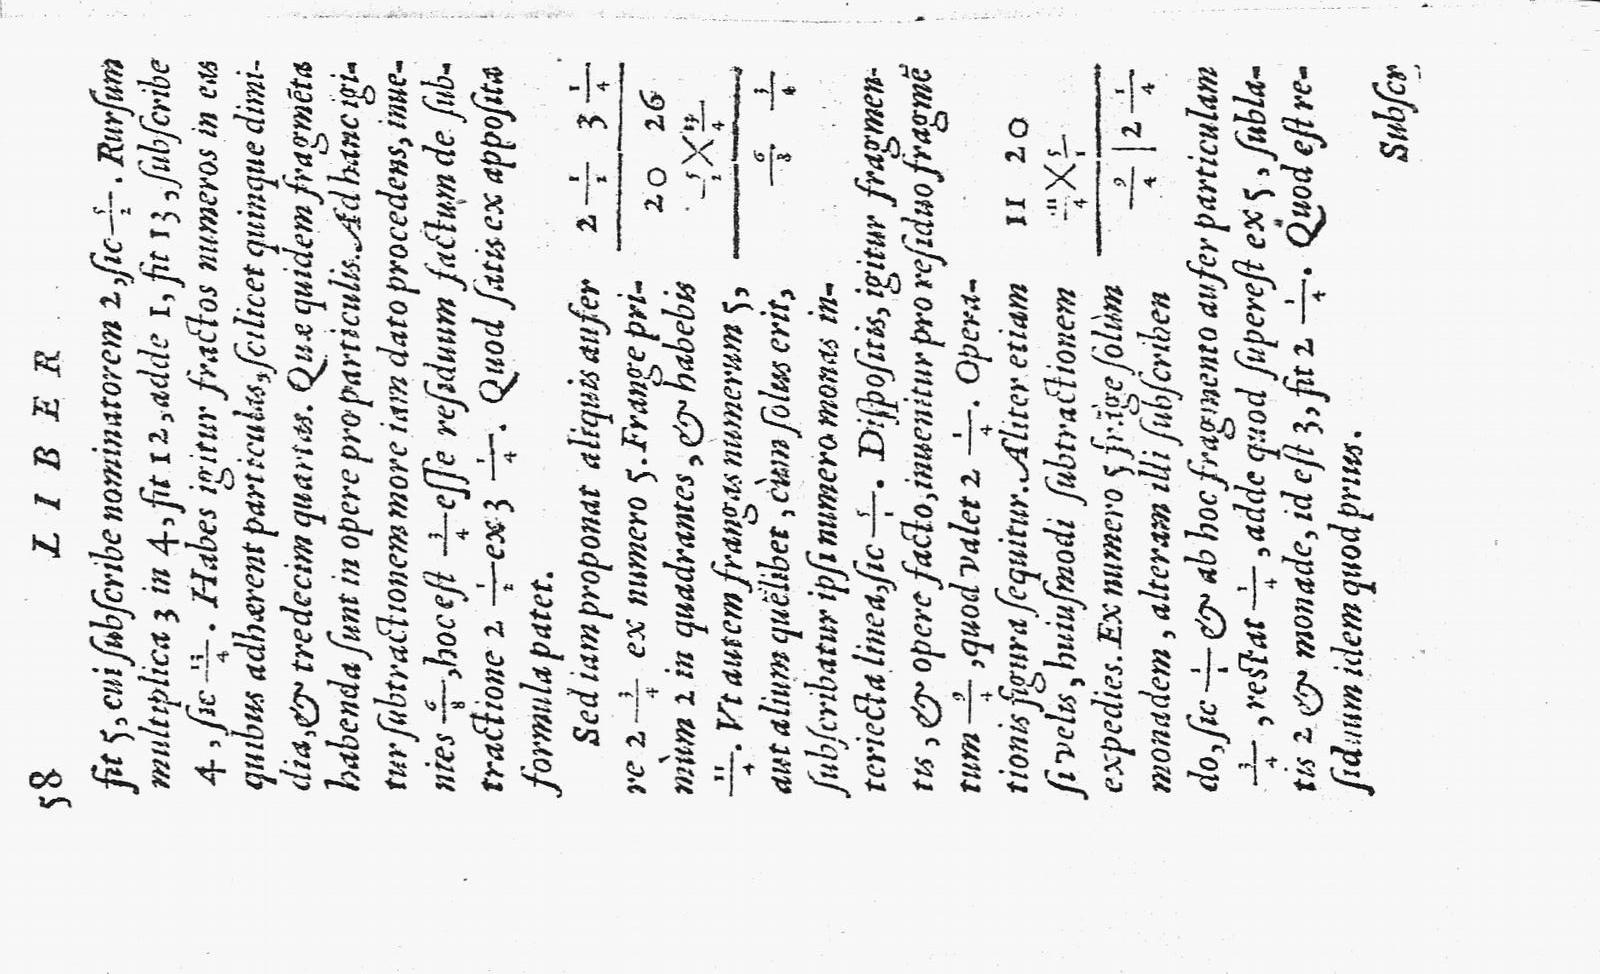 58 LIBER
fit 5, cui ſubſcribe nominatorem 2, ſic 5/2. Rurſum
multiplica 3 in 4, fit 12, adde 1, fit 13, ſubſcribe
4, ſic 13/4. Habes igitur fractos numeros in eas
quibus adhærent particulas, ſcilicet quinque dimi-
dia, & tredecim quartas. Quæ quidem fragmēta
habenda ſunt in opere pro particulis. Ad hanc igi-
tur ſubtractionem more iam dato procedens, inue-
nies 6/8, hoc eſt 3/4 eſſe reſiduum factùm de ſub-
tractione 2 1/2 ex 3 1/4. Quod ſatis ex appoſita
formula patet.
Sed iam proponat aliquis aufer
re 2 3/4 ex numero 5. Frange pri-
mùm 2 in quadrantes, & habebis
11/4. Vt autem frangas numerum 5,
aut alium quēlibet, cùm ſolus erit,
ſubſcribatur ipſi numero monas in-
2 1/2 3 1/4
20 26
5/2 X 13/4
6/8 3/4
teriecta linea, ſic 5/1. Diſpoſitis, igitur fragmen-
tis, & opere facto, inuenitur pro reſiduo fragmē
tum 9/4, quod valet 2 1/4. Opera-
tionis figura ſequitur. Aliter etiam
ſi velis, huiuſmodi ſubtractionem
expedies. Ex numero 5 frige ſolùm
monadem, alteram illi ſubſcriben
11 20
11/4 X 5/1
9/4 | 2 1/4
do, ſic 1/1 & ab hoc fragmento aufer particulam
3/4, reſtat 1/4, adde quod ſupereſt ex 5, ſubla-
tis 2 & monade, id eſt 3, fit 2 1/4. Quod eſt re-
ſiduum idem quod prius.
Subſcr